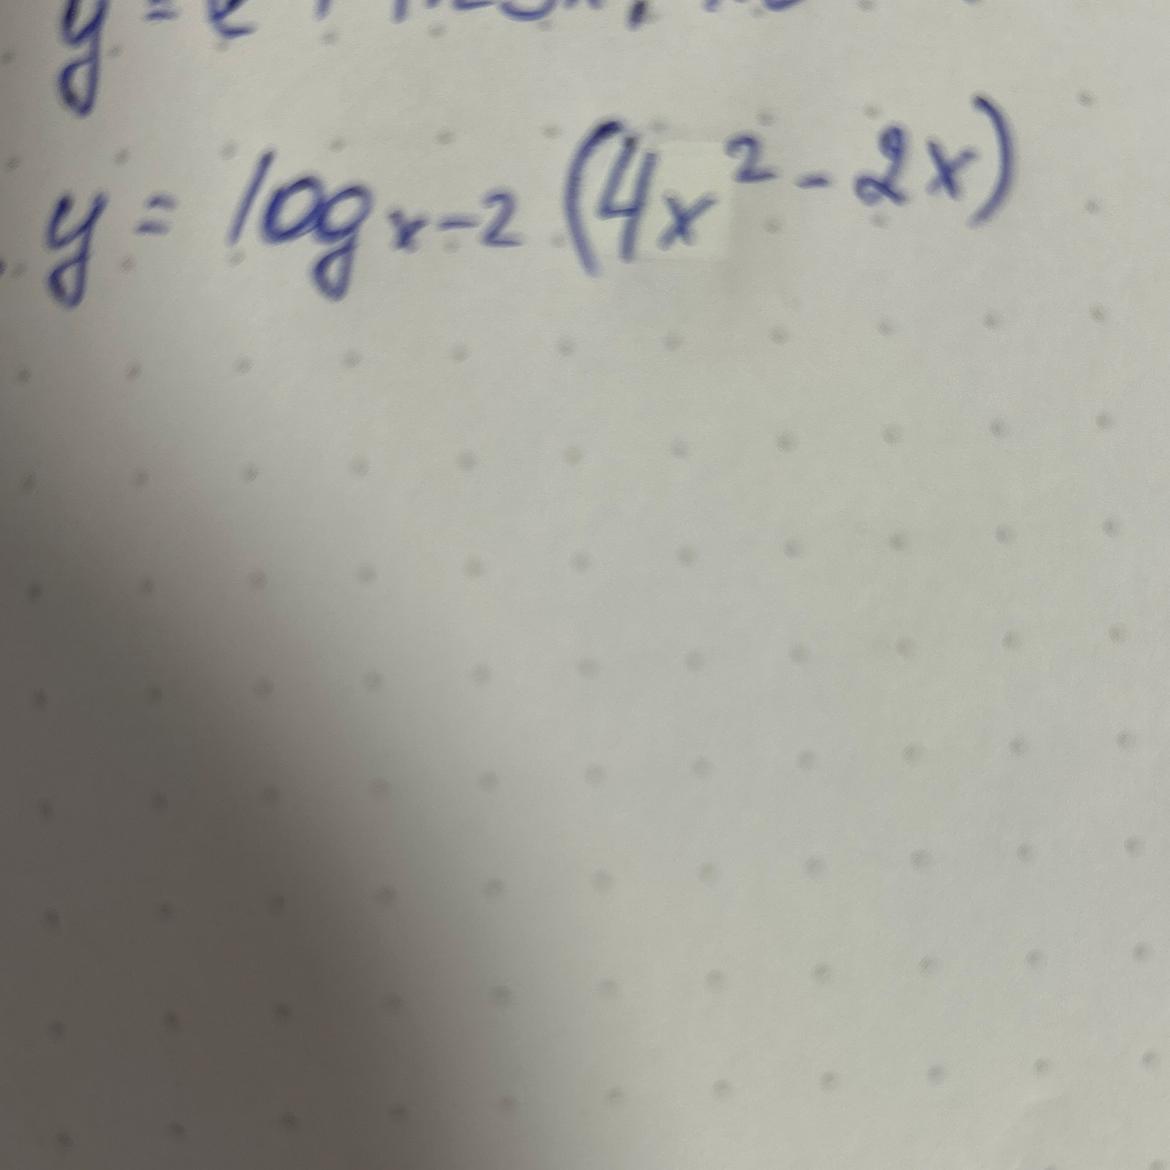 y =
y = log x-2 (4x² - 2x)